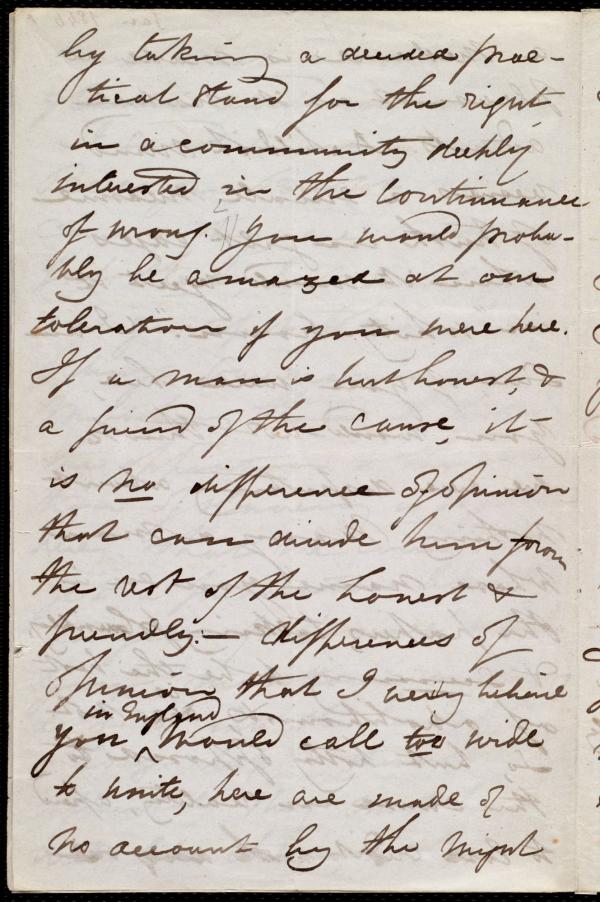 by taking a decided prac-
tical stand for the right
in a community deeply
interested in the continuance
of wrong. You would proba-
bly be amazed at our
toleration if you were here.
If a man is but honest, &
a friend of the cause, it
is no difference of opinion
that can divide him from
the rest of the honest &
friendly. — differences of
opinion that I verily believe
you in England would call too wide
to unite, here are made of
no account by the might